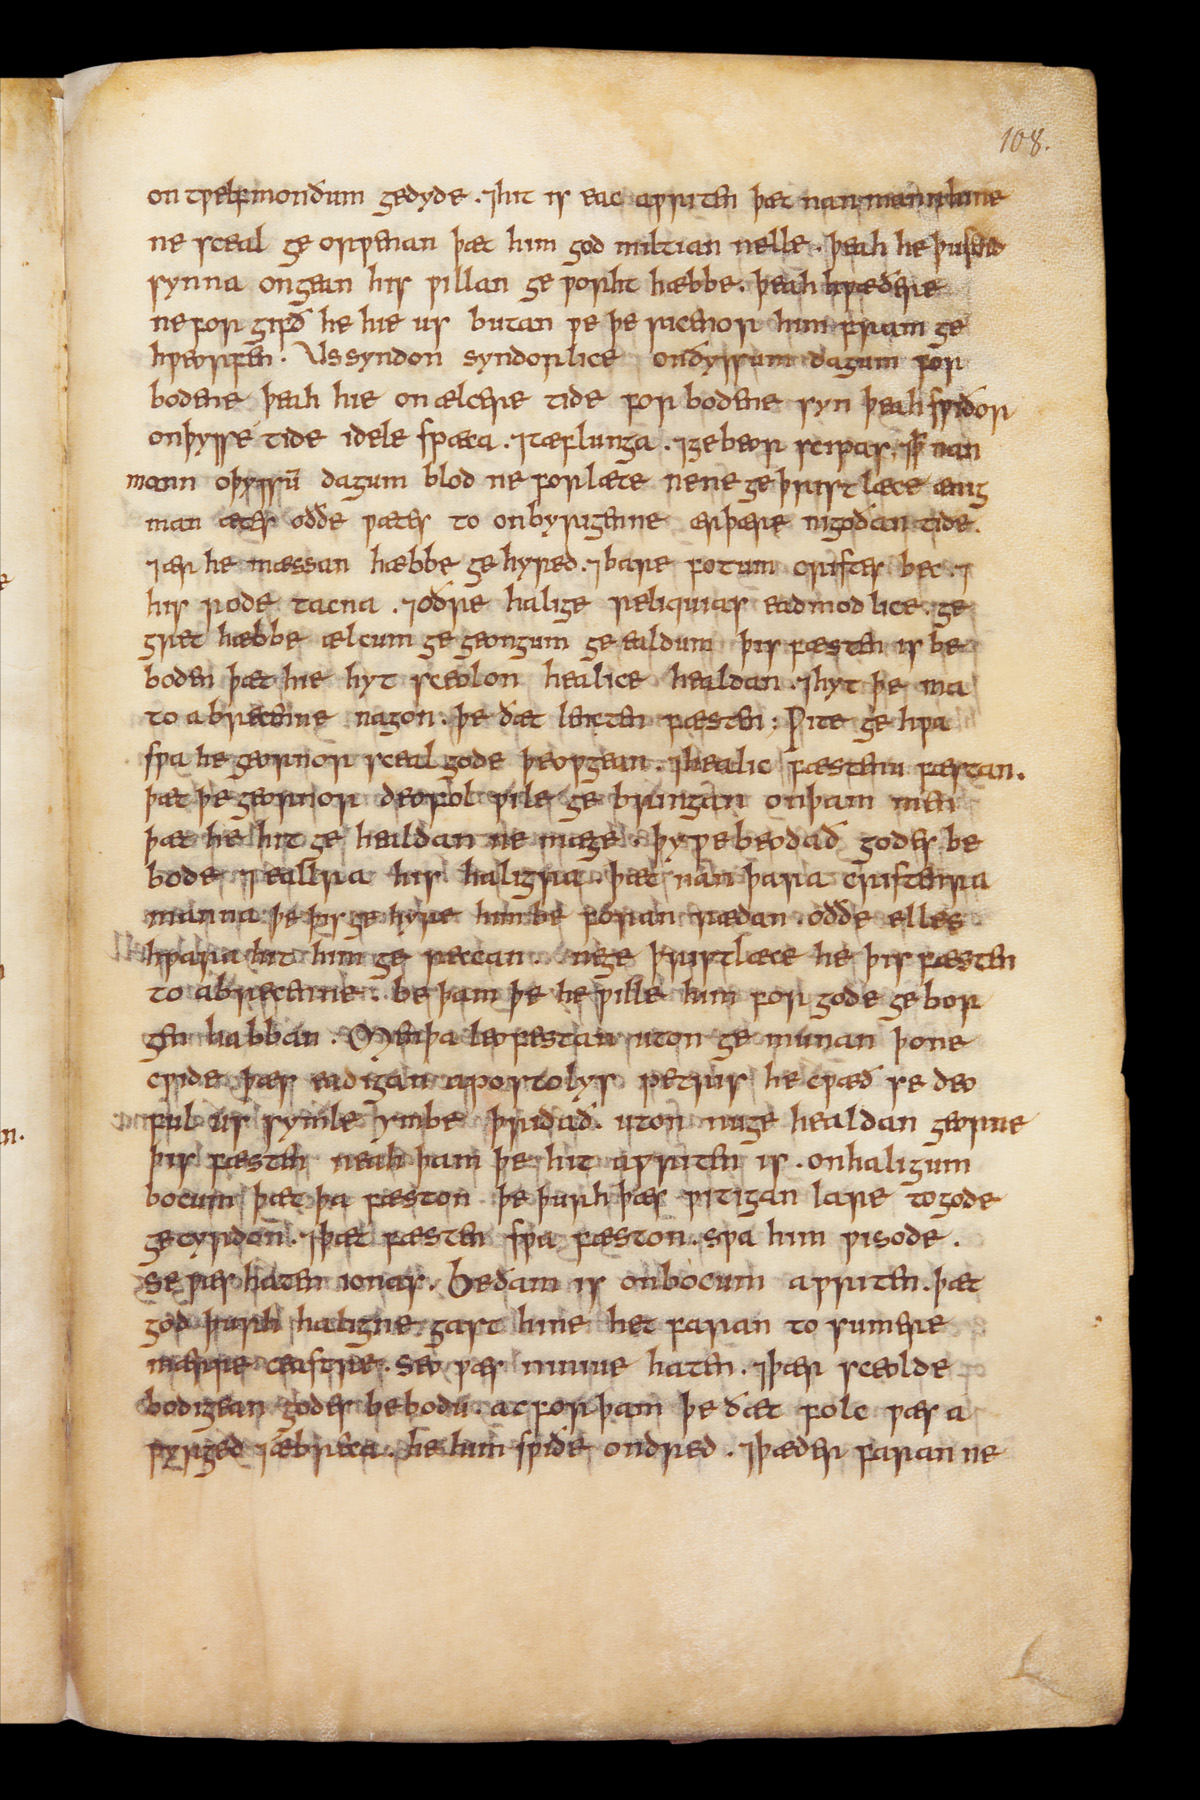 108.
on tƿelfmonðum gedyde . ⁊hit is eac aƿriten þæt nan mann hine
ne sceal ge orƿenan þæt him god miltian nelle . þeah he þusend
synna ongean his ƿillan ge ƿorht hæbbe . þeah hƿæðere
ne for gifð he hie us butan ƿe þe raþenor him fram ge
hƿeorfen . Us syndon syndorlice on ðyssum dagum for
bodene þeah hie on ælcere tide for bodene syn þeah sƿiðor
on þysse tide idele spæca . ⁊tæflunga . ⁊gebeor scipas . ⁊þ nan
mann oþyssū dagum blod ne forlæte ne ne geþristlæce ænig
man ætes oððe ƿætes to onbyrigenne ær þære nigoðan tide .
⁊ær he mæssan hæbbe ge hyred . ⁊bare fotum cristes bec . ⁊
his rode tacna . ⁊oðre halige reliquias eadmodlice . ge
gret hæbbe ælcum ge geongum ge ealdum þis fæsten is be
boden þæt hie hyt sceolon healice healdan . ⁊hyt þe ma
to abrecenne nagon . þe ðæt lencten fæsten ; Ƿite ge hƿa
sƿa he geornor sceal gode þeoƿgean . ⁊healic fæstenu fæstan .
þæt þe geornor deofol ƿile ge bringan on þam men
þæt he hit ge healdan ne mæge . þy ƿe beodað godes be
bode ⁊ ealra his haligra . þæt nan þara cristenra
manna þe þis ge hyre him be foran rædan oððe elles
hƿara hit him ge reccan . ne ge þristlæce he þis fæsten
to abrecenne . be þam þe he ƿille him for gode ge bor
gen habban . Men þa leofestan uton ge munan þone
cƿide þæs eadigan apostolys petrus he cƿæð se deo
ful us symle ymbe þridað . uton nu ge healdan georne
þis fæsten neah þam þe hit aƿriten is . on haligum
bocum þæt þa fæston þe þurh þæs ƿitigan lare to gode
ge cyrdon . ⁊þæt fæsten sƿa fæston . sƿa him ƿisode .
se ƿæs haten ionas . Be ðam is on bocum aƿriten . þæt
god þurh haligne gast hine het faran to sumere
mærre ceastre . seo ƿæs niniue haten . ⁊þær sceolde
bodigean godes bebodu . ac for þam þe ðæt folc ƿæs a
ƿyrged ⁊æbreca . he him sƿiðe ondred . ⁊þæder faran ne